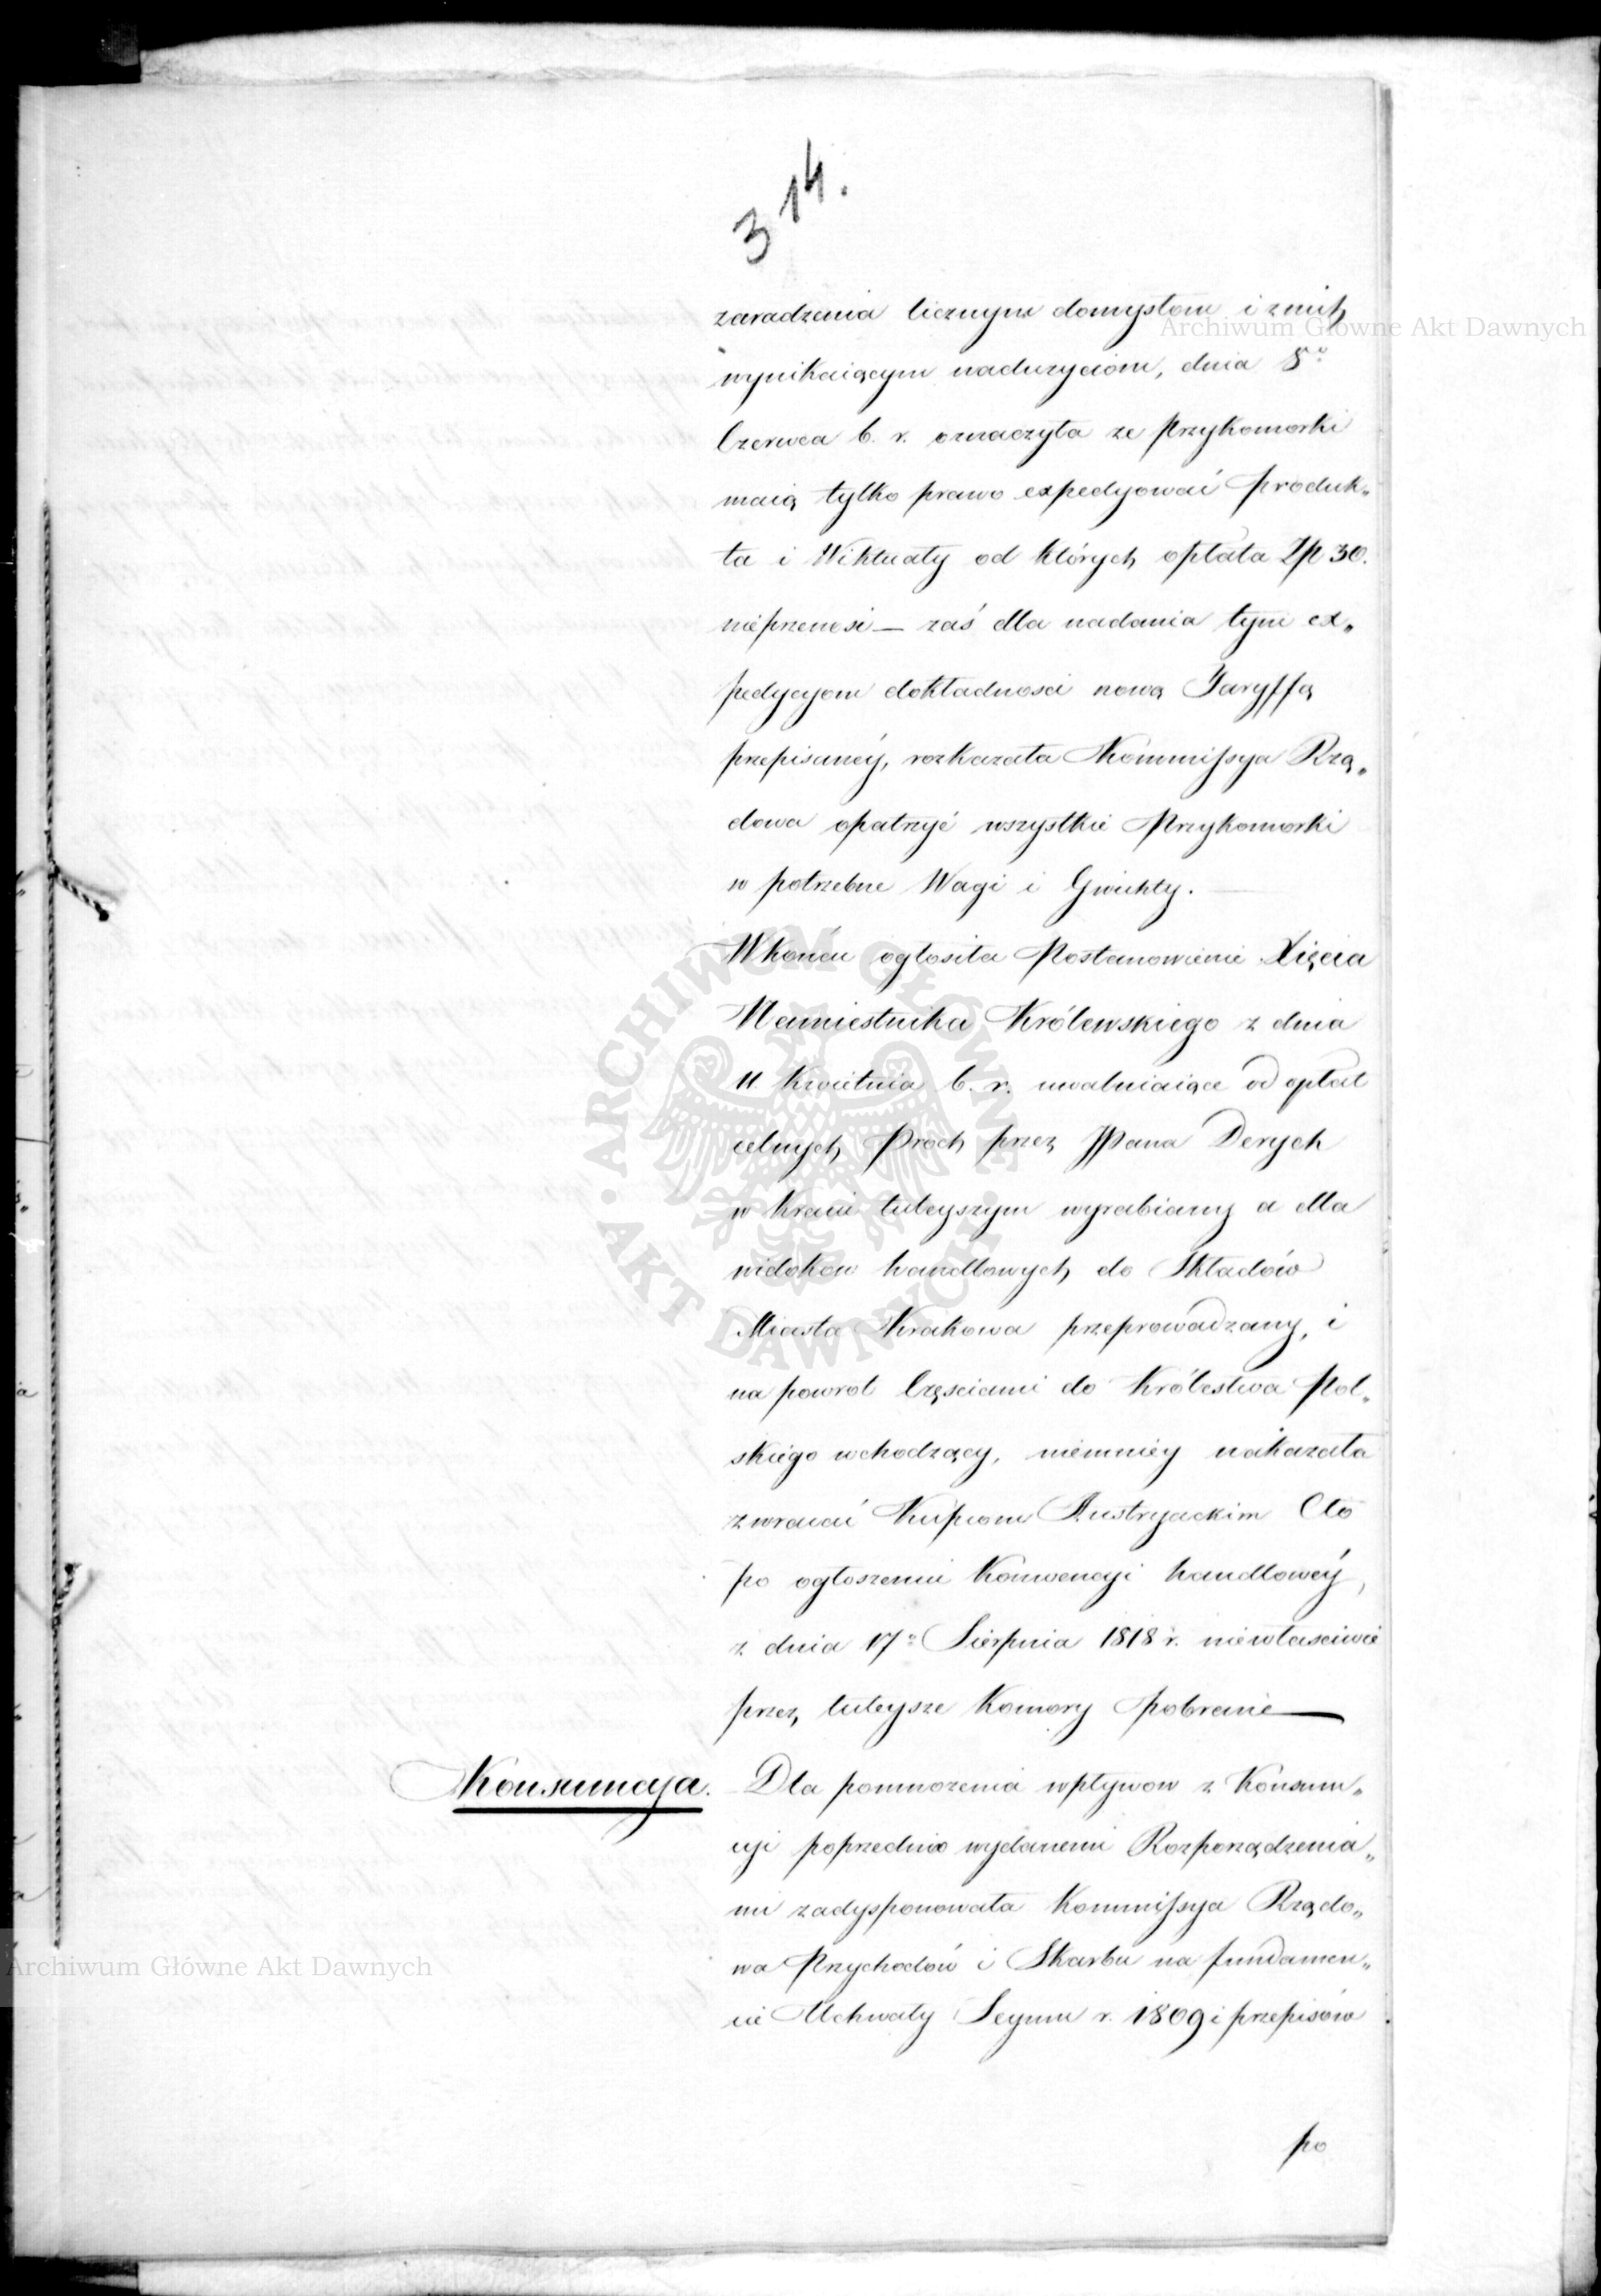 314.
zaradzenia licznym domysłom i z nich
Archiwum Główne Akt Dawnych
wynikaiącym nadużyciom, dnia 8º
Czerwca b. r. oznaczyła ze Przykomorki
maią tylko prawo expedyować Produk„
ta i Wiktuały od których opłata Zp 30.
nieprzenosi — zaś dla nadania tym ex„
pedycyom dokładnosci nową Taryffą
przepisanéy, rozkazała Kommissya Rzą„
dowa opatrzyć wszystkie Przykomorki
w potrzebne Wagi i Gwichty. —
W końcu ogłosiła Postanowienie Xięcia
Namiestnika Królewskiego z dnia
11 Kwietnia b. r. uwalniaiące od opłat
celnych Proch przez JPana Derych
w Kraiu tuteyszym wyrabiany a dla
widokow handlowych do Składów
Miasta Krakowa przeprowadzany, i
na powrot Częsciami do Królestwa Pol„
skiego wchodzący, niemniéy nakazała
zwracać Kupcom Austryackim Cło
po ogłoszeniu Konwencyi handlowéy,
z dnia 17º Sierpnia 1818 r. niewłasciwie
przez tuteysze Komory pobranie —
Konsumcya. Dla pomnozenia wpływow z Konsum„
cyi poprzednio wydanemi Rozporządzenia„
mi zadysponowała Kommissya Rządo„
wa Przychodów i Skarbu na fundamen„
Archiwum Główne Akt Dawnych
cie Uchwały Seymu r. 1809 i przepisów
po
ARCHIWUM GŁÓWNE AKT DAWNYCH